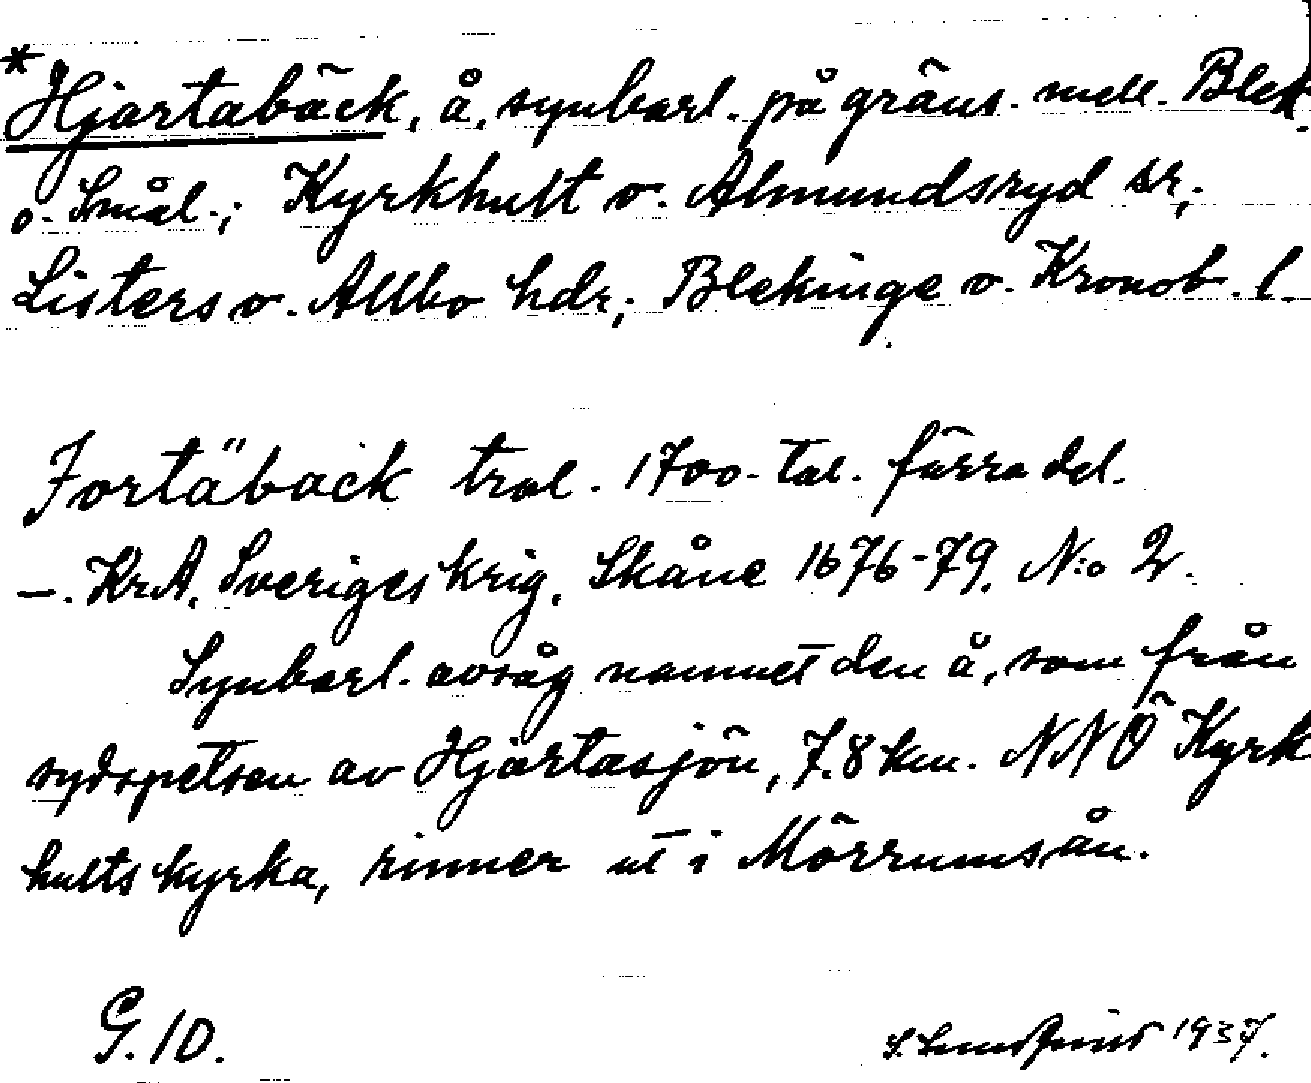 *Hjartabäck, å, synbarl. på gräns. mell. Blek.
o. Smål.; Kyrkhult o. Almundsryd sr,
Listers o. Allbo hdr; Blekinge o. Kronob. l.
Jortäback trol. 1700-tal. förra del.
—. KrA, Sveriges krig. Skåne 1676-79. N:o 2.
Synbarl. avsåg namnet den å, som från
sydspetsen av Hjärtasjön, 7.8 km. NNÖ Kyrk
hults kyrka, rinner ut i Mörrumsån.
G. 10.
1937.